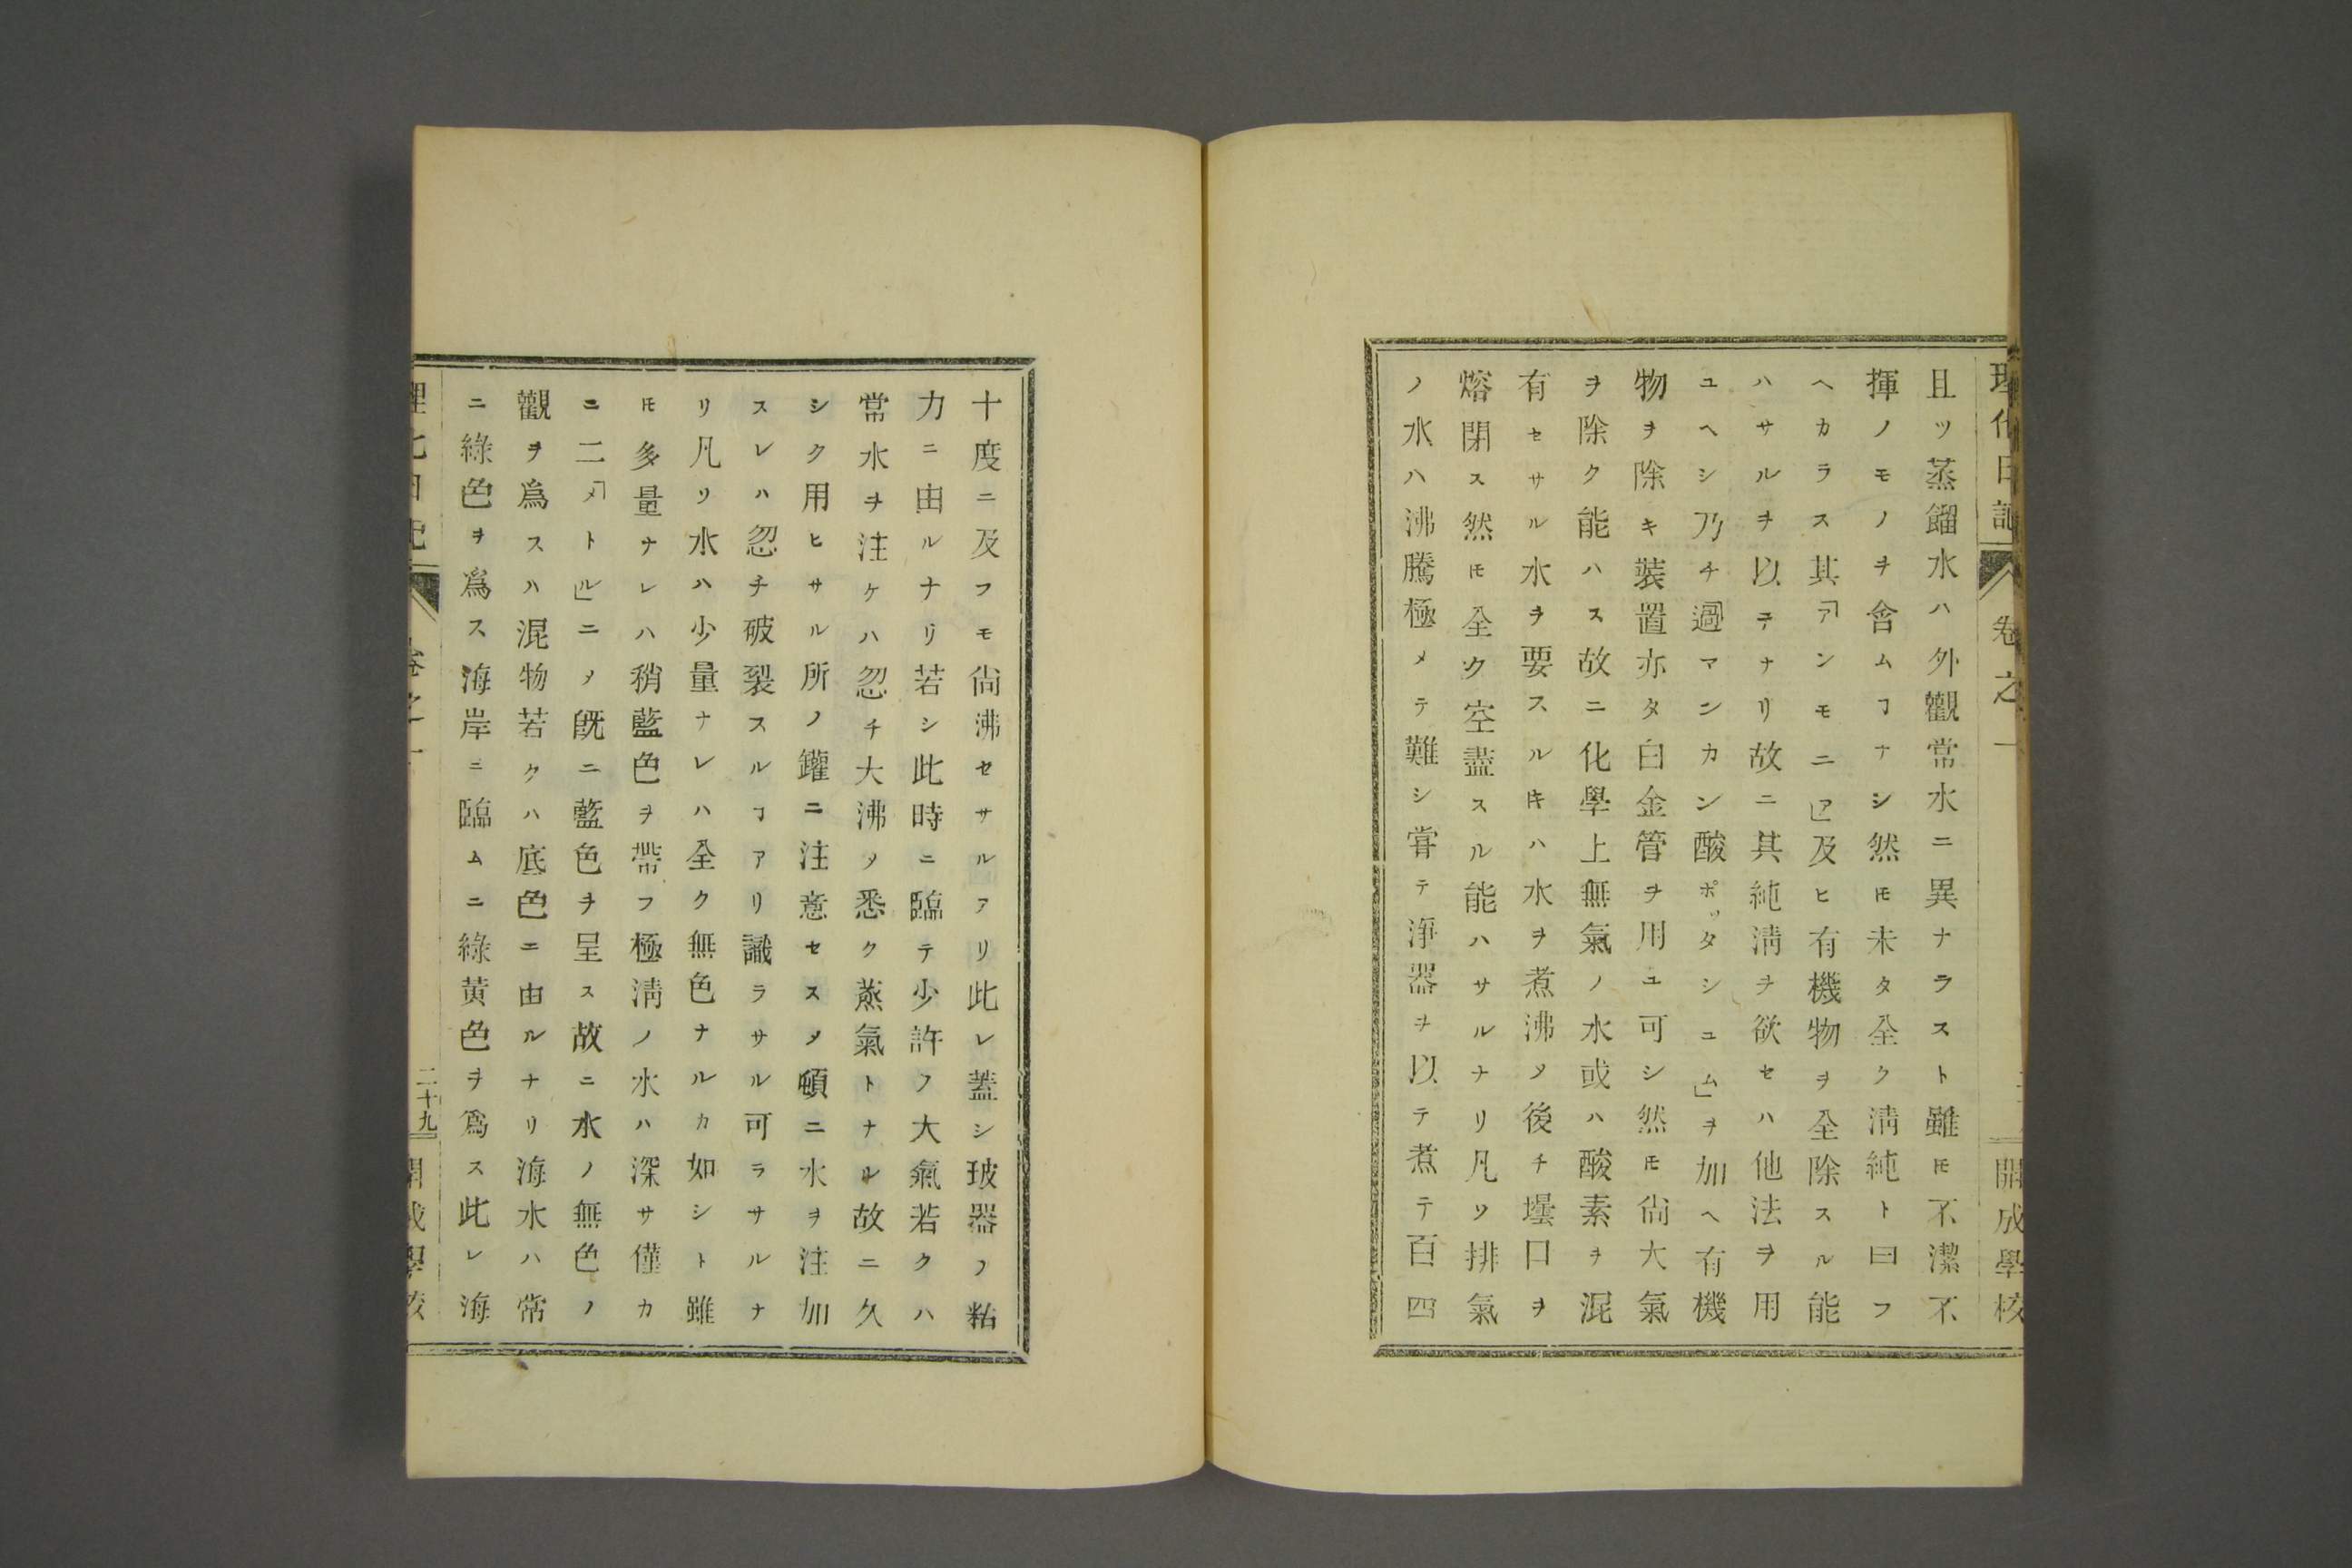 理化日記 卷之一 開成學校
且ツ蒸餾水ハ外觀常水ニ異ナラスト雖𪜈不潔不
揮ノモノヲ含ムヿナシ然𪜈未タ全ク淸純ト曰フ
ヘカラス其「アンモニア」及ヒ有機物ヲ全除スル能
ハサルヲ以テナリ故ニ其純淸ヲ欲セハ他法ヲ用
ユヘシ乃チ「過マンカン酸ポッタシユム」ヲ加ヘ有機
物ヲ除キ裝置亦タ白金管ヲ用ユ可シ然𪜈尙大氣
ヲ除ク能ハス故ニ化學上無氣ノ水或ハ酸素ヲ混
有セサル水ヲ要スル𬼀ハ水ヲ煮沸〆後チ壜口ヲ
熔閉ス然𪜈全ク空盡スル能ハサルナリ凡ソ排氣
ノ水ハ沸騰極メテ難シ甞テ淨器ヲ以テ煮テ百四
十度ニ及フモ尙沸セサルアリ此レ蓋シ玻器ノ粘
力ニ由ルナリ若シ此時ニ臨テ少許ノ大氣若クハ
常水ヲ注ケハ忽チ大沸〆悉ク蒸氣トナル故ニ久
シク用ヒサル所ノ鑵ニ注意セス〆頓ニ水ヲ注加
スレハ忽チ破裂スルヿアリ識ラサル可ラサルナ
リ凡ソ水ハ少量ナレハ全ク無色ナルカ如シト雖
𪜈多量ナレハ稍藍色ヲ帶フ極淸ノ水ハ深サ僅カ
ニ二「メトル」ニ〆既ニ藍色ヲ呈ス故ニ水ノ無色ノ
觀ヲ爲スハ混物若クハ底色ニ由ルナリ海水ハ常
ニ綠色ヲ爲ス海岸ニ臨ムニ綠黃色ヲ爲ス此レ海
理化日記 卷之一 二十九 開成學校